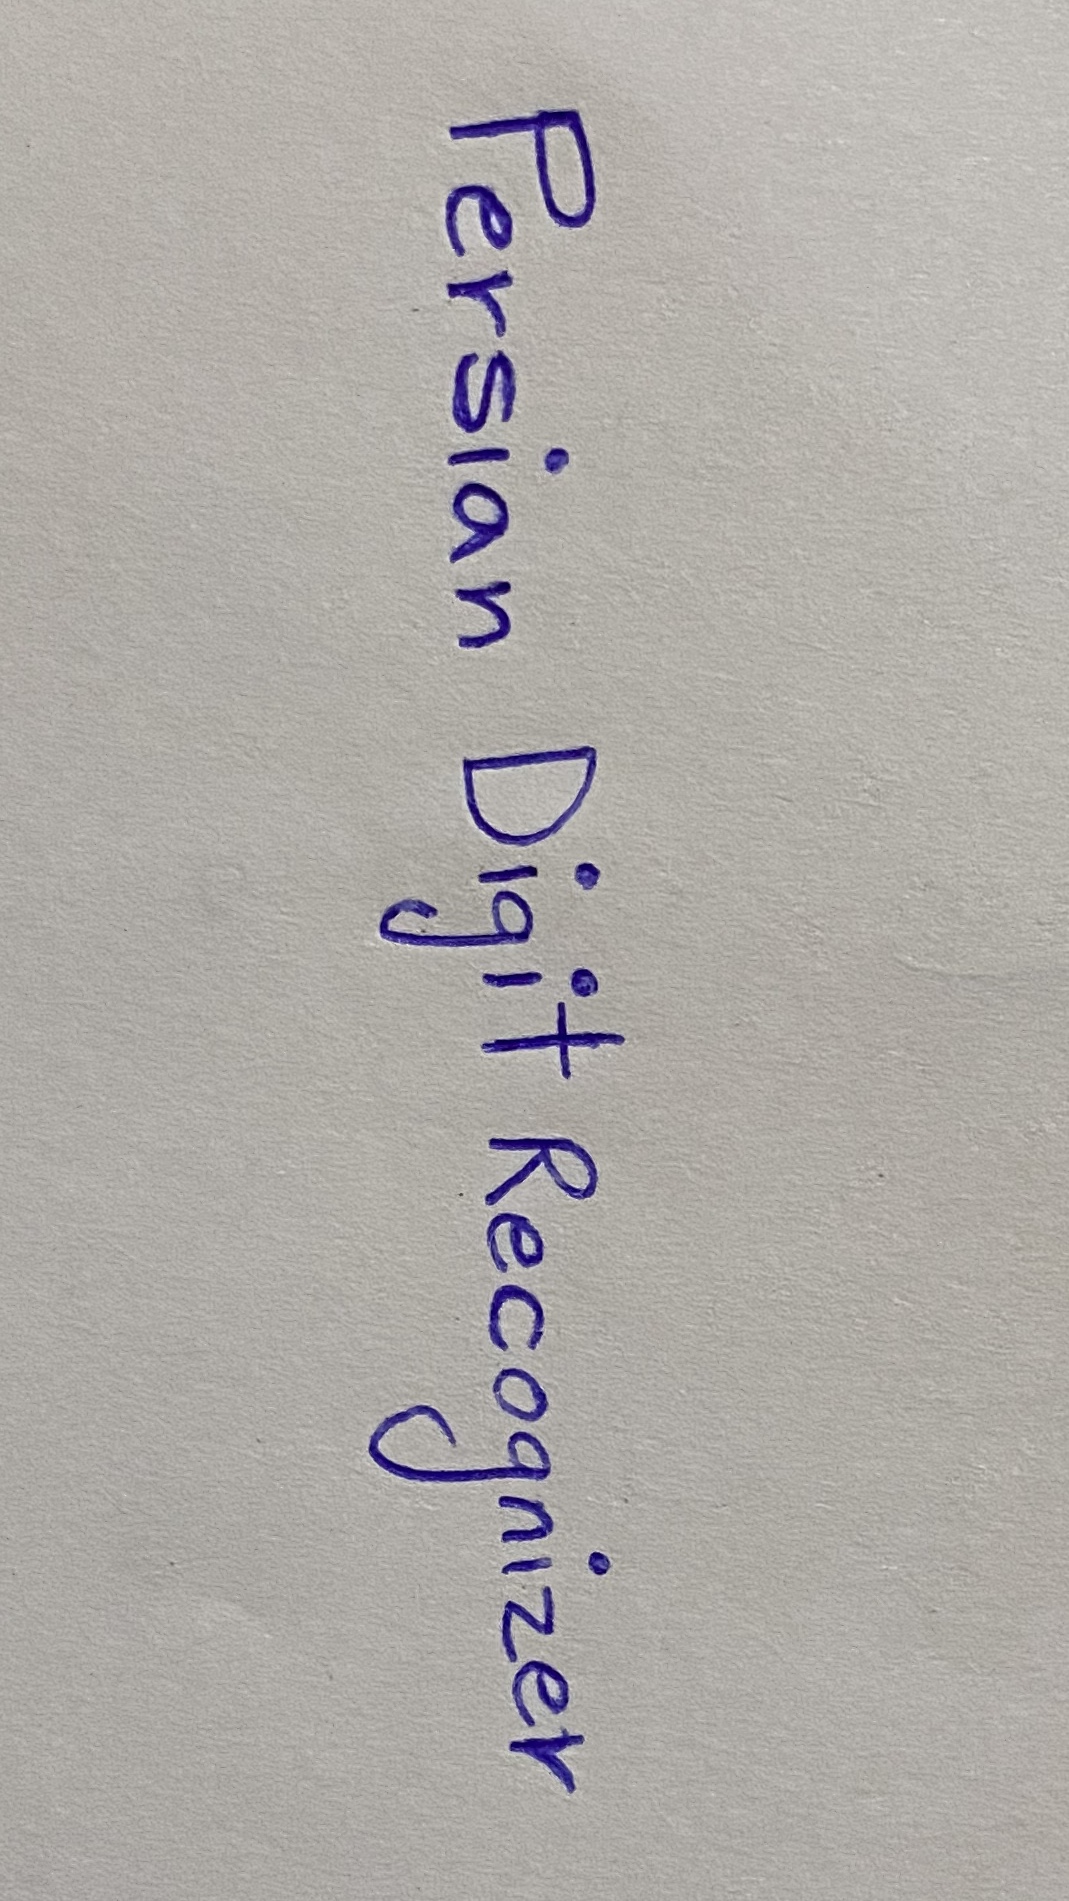 Persian Digit Recognizer